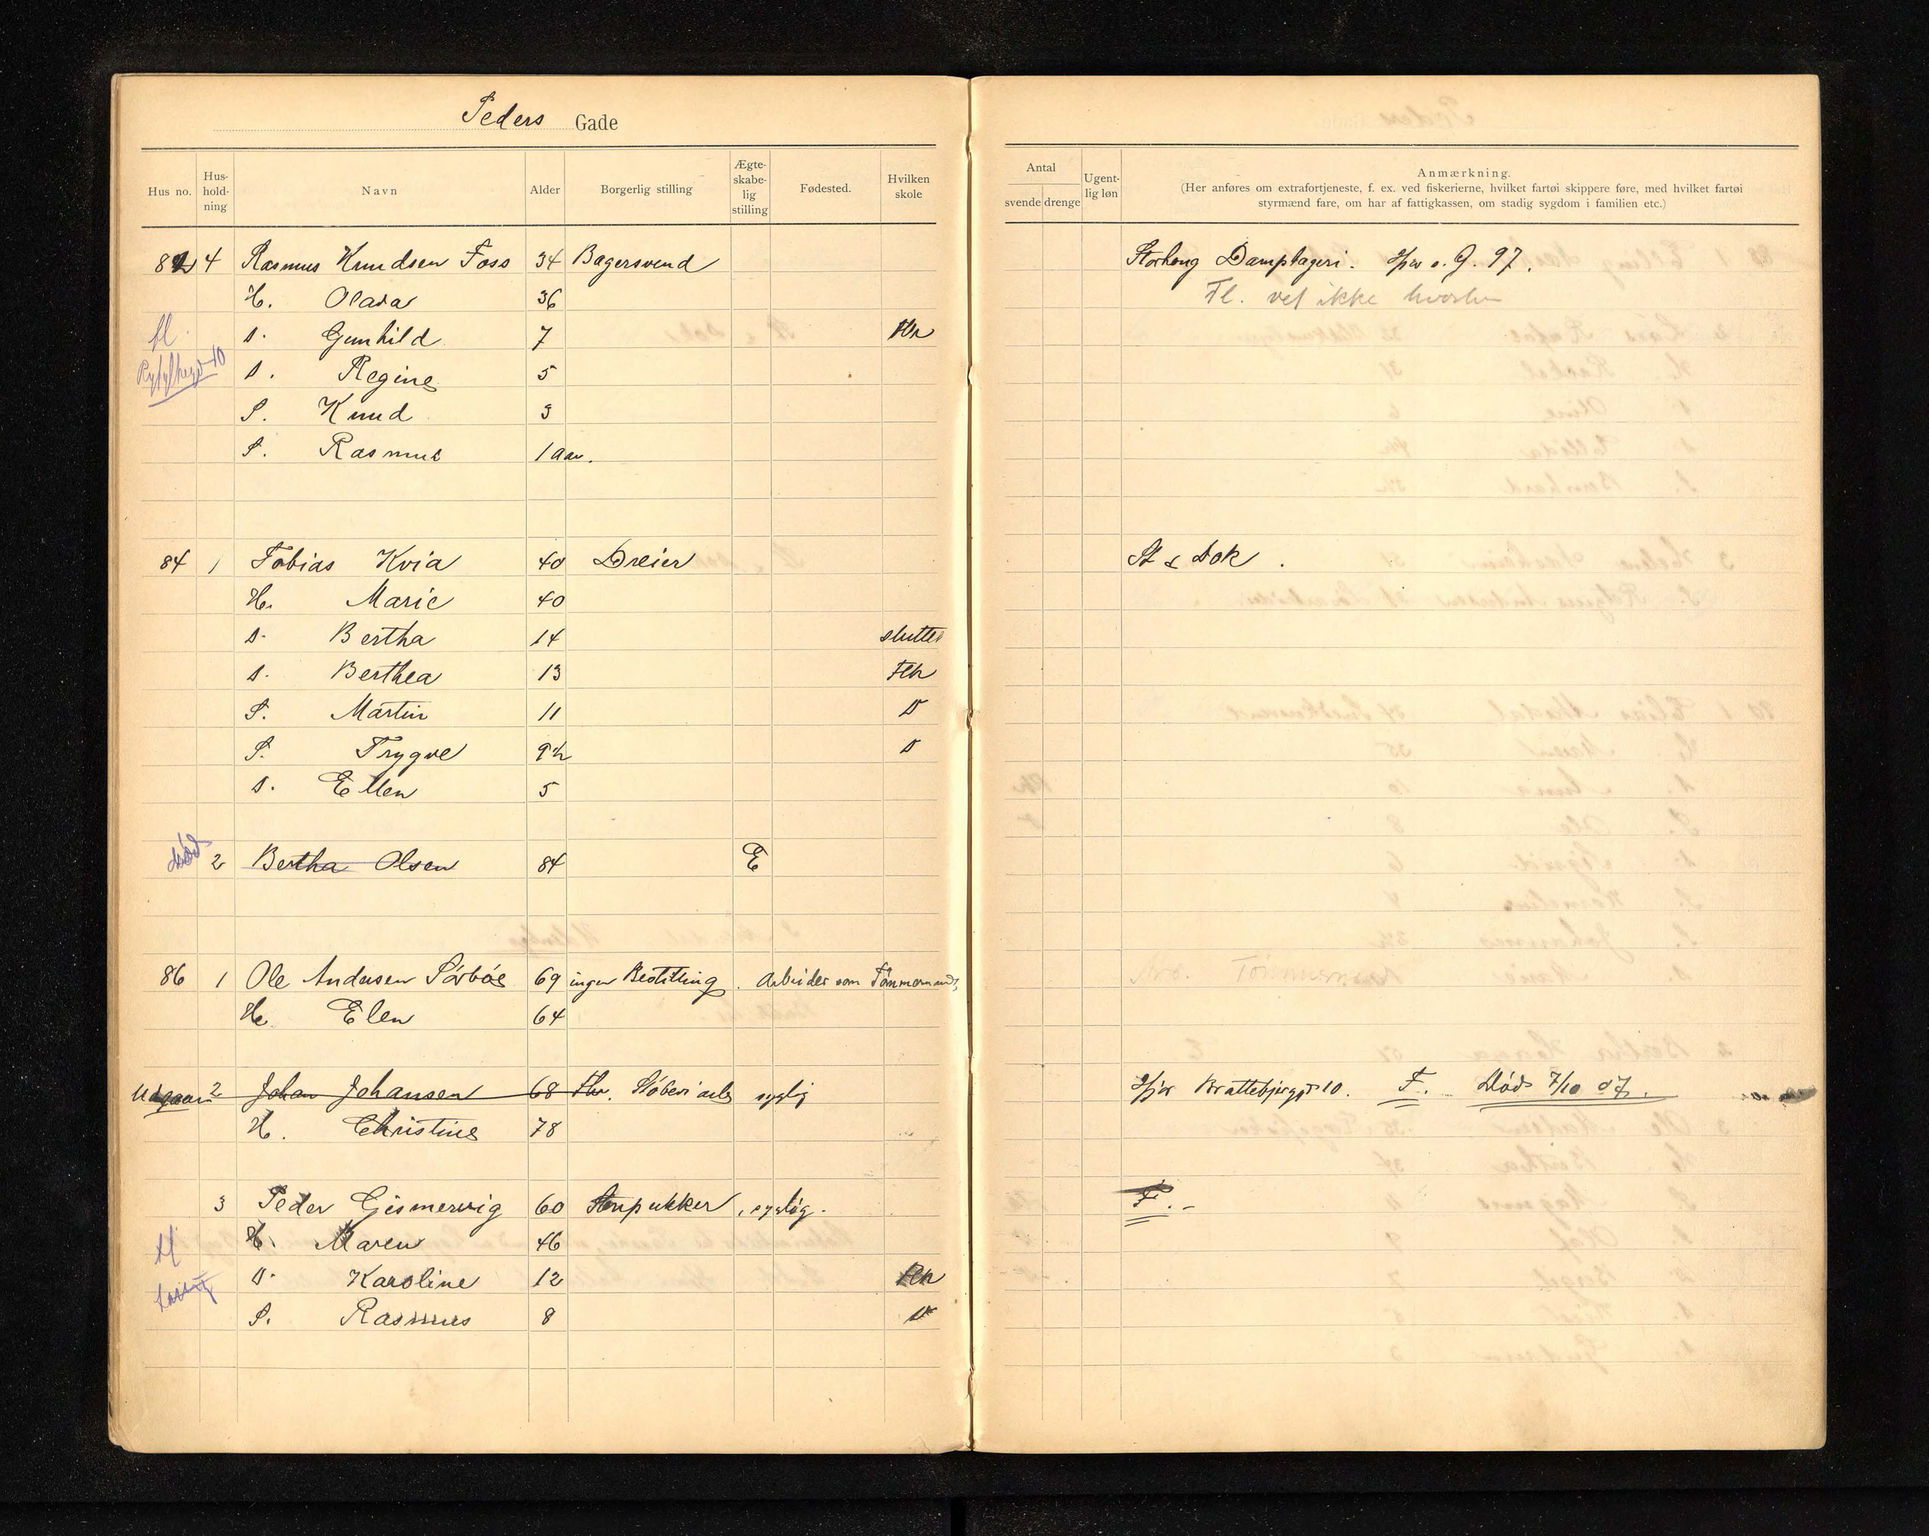 Peders Gade
Hus no. Hus-hold-ning Navn Alder Borgerlig stilling Ægte-skabe-lig stilling Fødested. Hvilken skole
Antal svende drenge Ugent-lig løn Anmærkning.
(Her anføres om extrafortjeneste, f. ex. ved fiskerierne, hvilket fartøi skippere føre, med hvilket fartøi
styrmænd fare, om har af fattigkassen, om stadig sygdom i familien etc.)
82 4 Rasmus Knudsen Foss 34 Bagersvend Storhaug Dampbageri. G. 97.
H. Olava 36 Fl. vet ikke hvorhen
fl. D. Gunhild 7 Flk
Ryfylkegd 10 D. Regine 5
S. Knud 3
S. Rasmus 1 aar.
84 1 Tobias Kvia 40 Dreier St & Dok.
H. Marie 40
D. Bertha 14 slutter
D. Berthea 13 Flk
S. Martin 11 D
S. Trygve 9½ D
D. Ellen 5
død 2 Bertha Olsen 84 E
86 1 Ole Andersen Sörböe 69 ingen Bestilling. Arbeider som Tömmermand
H. Elen 64
Udgaar 2 Johan Johansen 68 Støberiarb syglig Hjv Brattebjergt 10. F. Død 7/10 07.
H. Christine 78
3 Peder Gismervig 60 Stenpukker, syglig. F.
fl H. Maren 46
D. Karoline 12 Flk
S. Rasmus 8 D